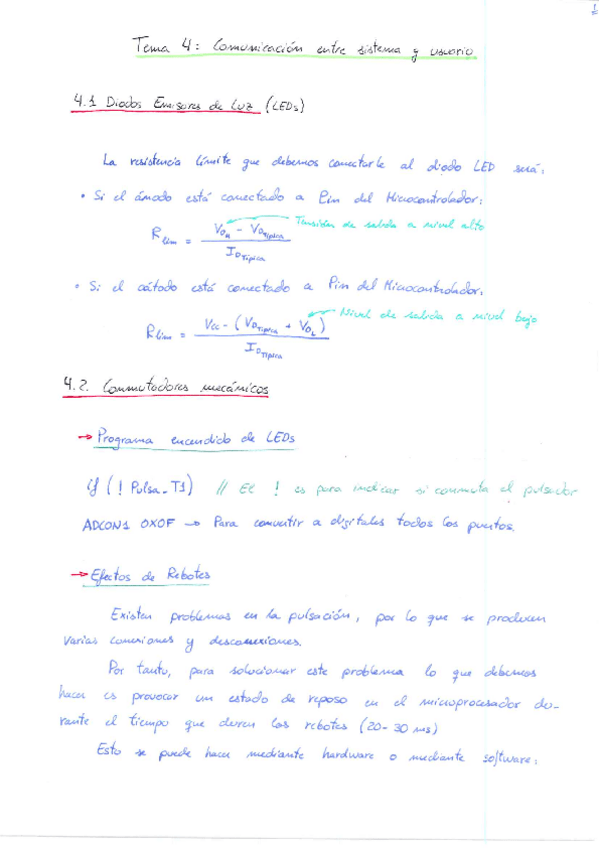 1
Tema 4: Comunicación entre sistema y usuario
4.1 Diodos Emisores de Luz (LEDs)
La resistencia límite que debemos conectarle al diodo LED será:
• Si el ánodo está conectado a Pin del Microcontrolador:
R_lim = (V_OH - V_DTípica) / I_DTípica
Tensión de salida a nivel alto
• Si el cátodo está conectado a Pin del Microcontrolador:
R_lim = (Vcc - (V_DTípica + V_OL)) / I_DTípica
Nivel de salida a nivel bajo
4.2. Conmutadores mecánicos
→ Programa encendido de LEDs
if (! Pulsa_T1) // El ! es para indicar si conmuta el pulsador
ADCON1 0X0F → Para convertir a digitales todos los puertos.
→ Efectos de Rebotes
Existen problemas en la pulsación, por lo que se producen
varias conexiones y desconexiones.
Por tanto, para solucionar este problema lo que debemos
hacer es provocar un estado de reposo en el microprocesador du-
rante el tiempo que duren los rebotes (20-30 ms)
Esto se puede hacer mediante hardware o mediante software: